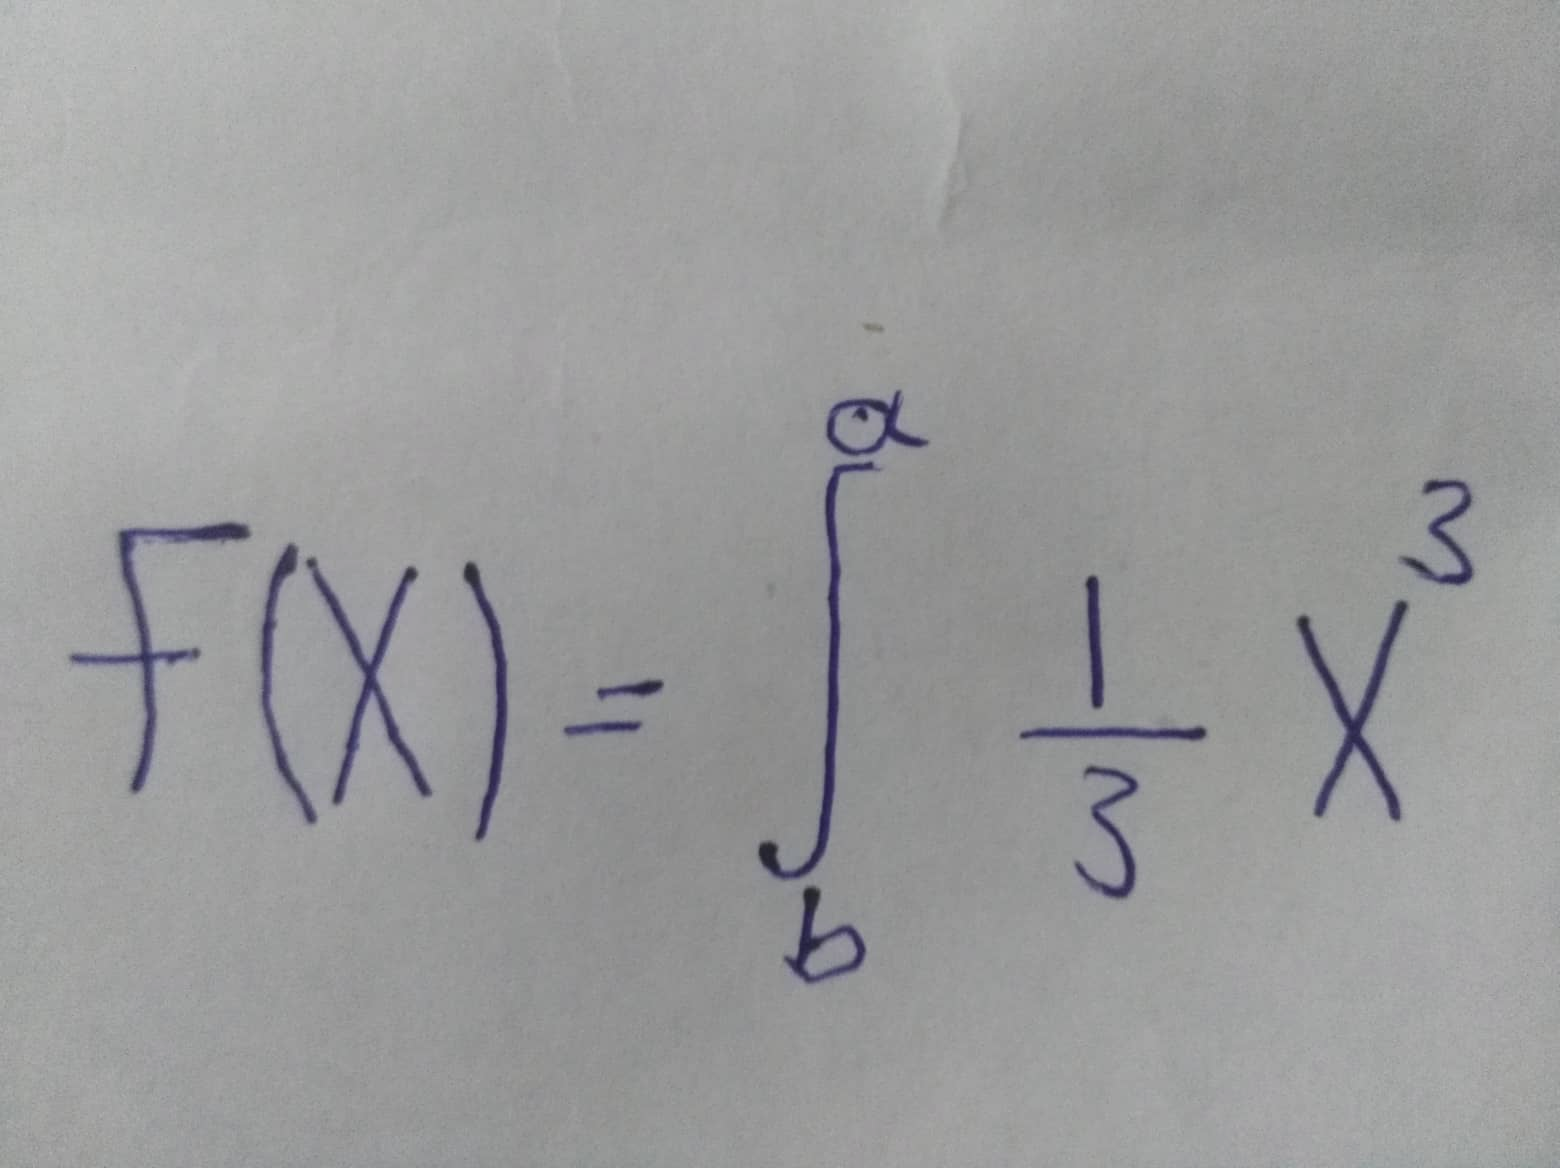 F(X) = ∫_b^a 1/3 X^3